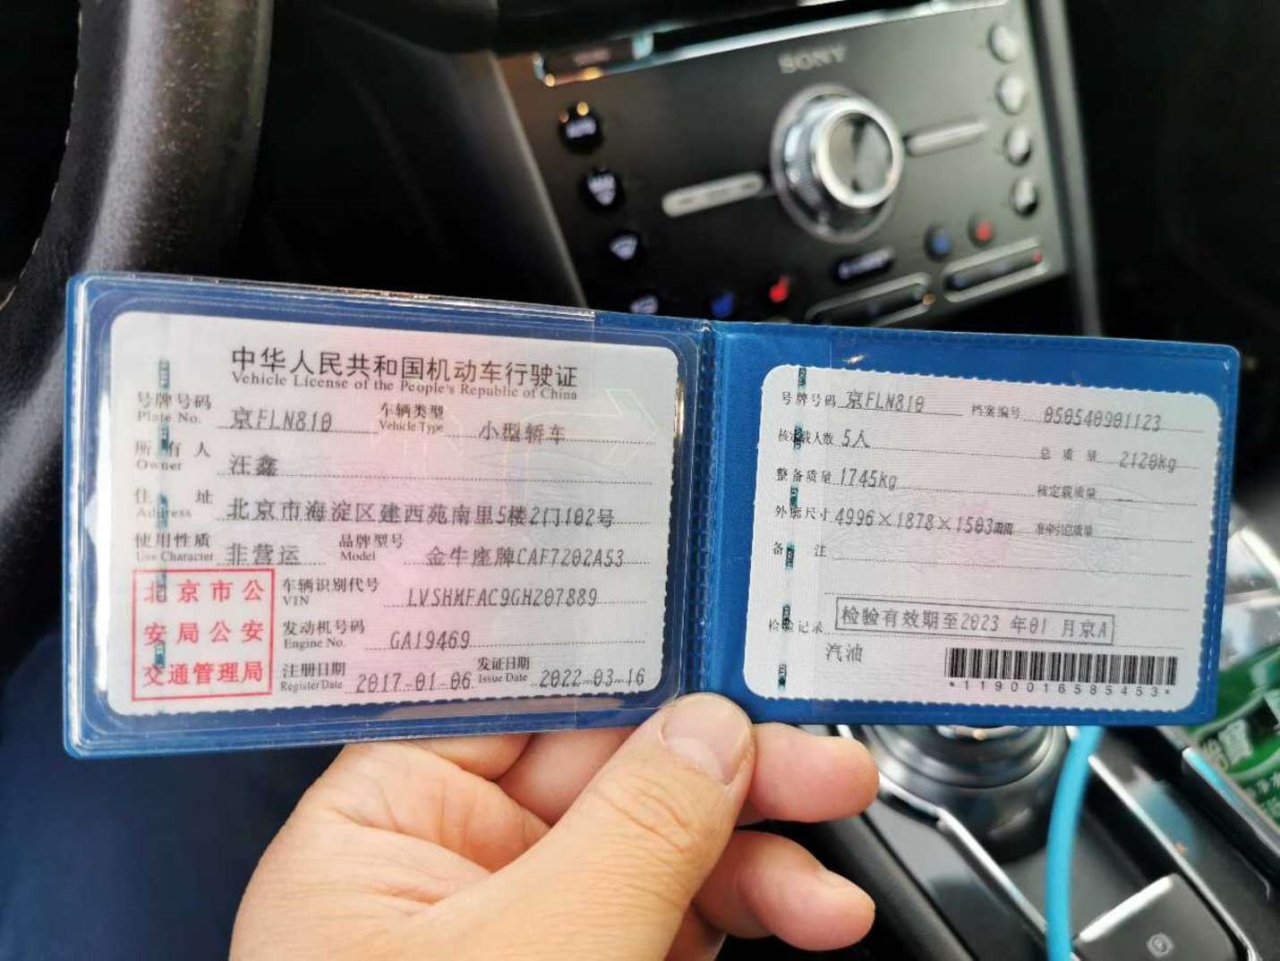 SONY
AUTO
中华人民共和国机动车行驶证
Vehicle License of the People's Republic of China
号牌号码 京FLN810 车辆类型 小型轿车
Plate No. Vehicle Type
所有人 汪鑫
Owner
住址 北京市海淀区建西苑南里5楼2门102号
Address
使用性质 非营运 品牌型号 金牛座牌CAF7202A53
Use Character Model
北京市公
安局公安
交通管理局
车辆识别代号 LVSHMFAC9GH207889
VIN
发动机号码 GA19469
Engine No.
注册日期 2017-01-06 发证日期 2022-03-16
Register Date Issue Date
号牌号码 京FLN810 档案编号 050540901123
核定载人数 5人 总质量 2120kg
整备质量 1745kg 核定载质量
外廓尺寸 4996×1878×1503mm 准牵引总质量
备注
检验记录 检验有效期至2023年01月京A
汽油
*1190016585453*